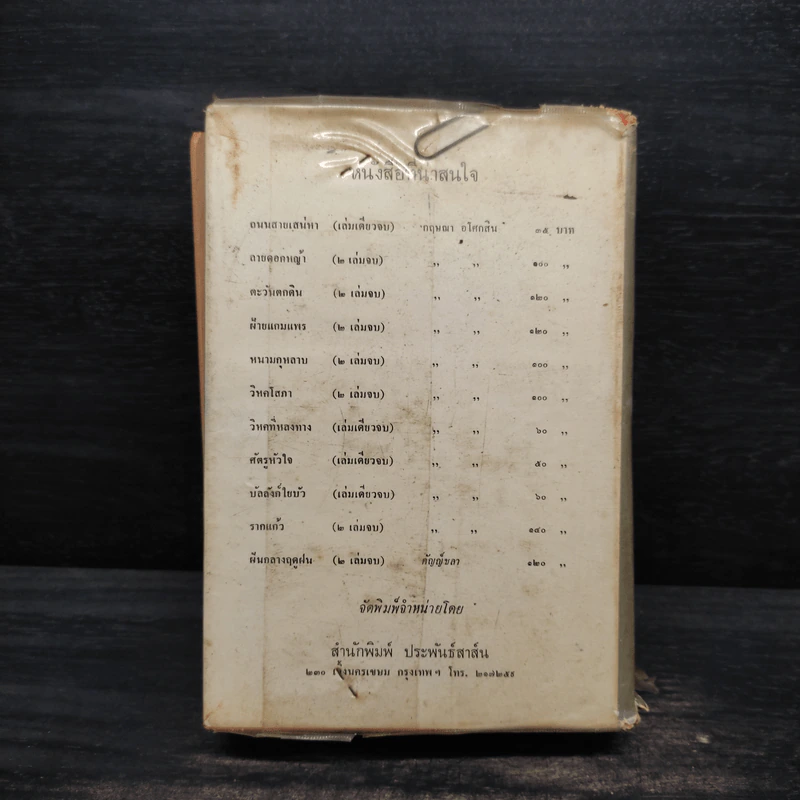 หนังสือที่น่าสนใจ
ถนนสายเสน่หา (เล่มเดียวจบ) กฤษณา อโศกสิน ๓๕ บาท
ลายดอกหญ้า (๒ เล่มจบ) ,, ,, ๑๐๐ ,,
ตะวันตกดิน (๒ เล่มจบ) ,, ,, ๑๒๐ ,,
ฝ้ายแกมแพร (๒ เล่มจบ) ,, ,, ๑๒๐ ,,
หนามกุหลาบ (๒ เล่มจบ) ,, ,, ๑๐๐ ,,
วิหคโสภา (๒ เล่มจบ) ,, ,, ๑๐๐ ,,
วิหคที่หลงทาง (เล่มเดียวจบ) ,, ,, ๖๐ ,,
ศัตรูหัวใจ (เล่มเดียวจบ) ,, ,, ๕๐ ,,
บัลลังก์ใยบัว (เล่มเดียวจบ) ,, ,, ๖๐ ,,
รากแก้ว (๒ เล่มจบ) ,, ,, ๑๔๐ ,,
ฝันกลางฤดูฝน (๒ เล่มจบ) กัญญ์ชลา ๑๒๐ ,,
จัดพิมพ์จำหน่ายโดย
สำนักพิมพ์ ประพันธ์สาส์น
๒๓๐ เวิ้งนครเขษม กรุงเทพฯ โทร.